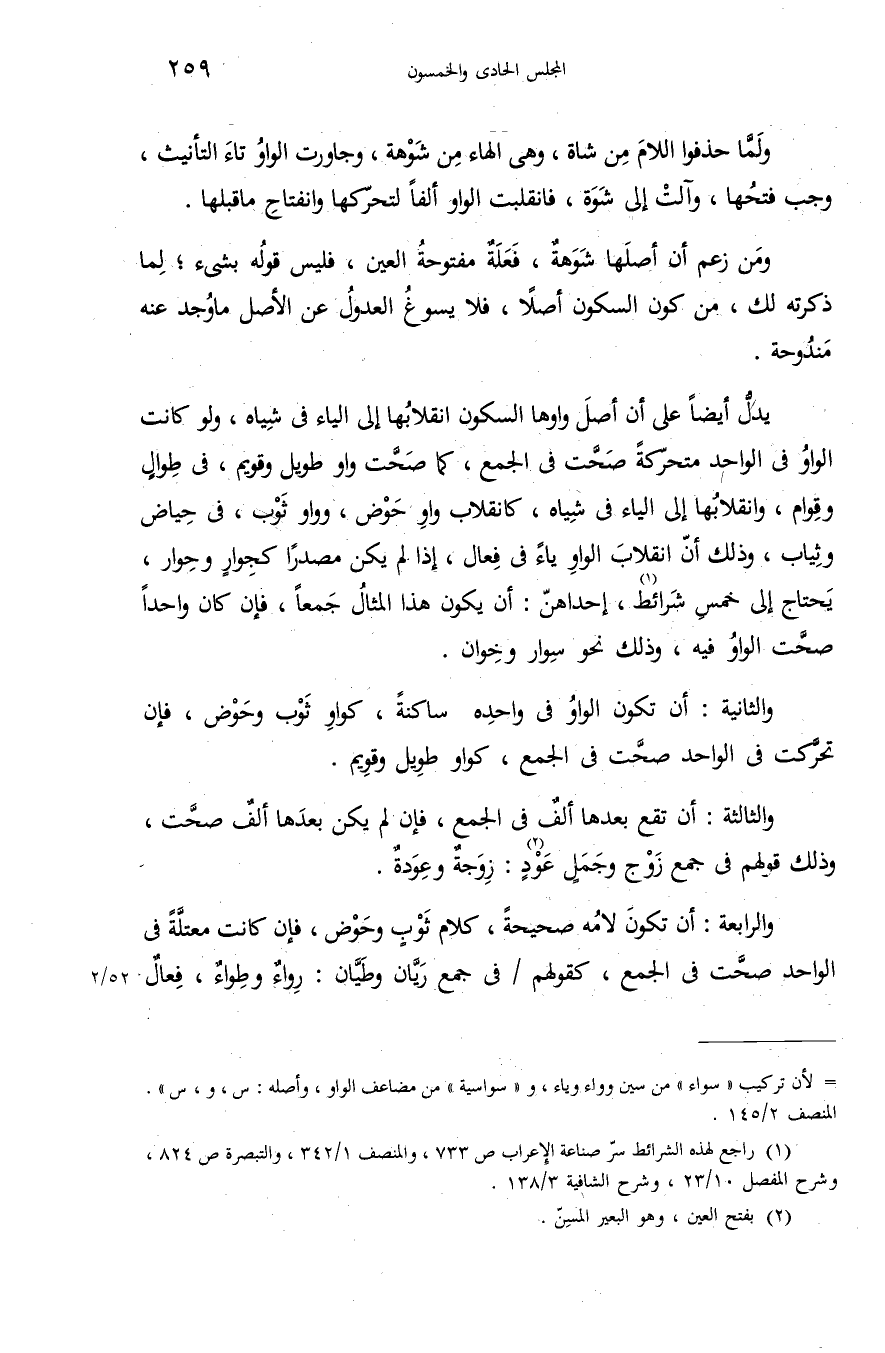 المجلس الحادى والخمسون ٢٥٩
ولَمَّا حذفوا اللامَ مِن شاة ، وهى الهاء مِن شَوْهة ، وجاورت الواوُ تاءَ التأنيث ،
وجب فتحُها ، وآلتْ إلى شَوَة ، فانقلبت الواو ألفاً لتحرّكها وانفتاحِ ماقبلها .
ومَن زعم أن أصلَها شَوَهةٌ ، فَعَلَةٌ مفتوحةُ العين ، فليس قولُه بشىء ؛ لِما
ذكرته لك ، مِن كون السكون أصلًا ، فلا يسوغُ العدولُ عن الأصل ماوُجد عنه
مَندُوحة .
يدلُّ أيضاً على أن أصلَ واوها السكون انقلابُها إلى الياء فى شِياه ، ولو كانت
الواوُ فى الواحِد متحركةً صَحَّت فى الجمع ، كما صَحَّت واو طويل وقويم ، فى طِوالٍ
وقِوام ، وانقلابُها إلى الياء فى شِياه ، كانقلاب واوِ حَوْض ، وواو ثَوْب ، فى حِياض
وثِياب ، وذلك أنّ انقلابَ الواوِ ياءً فى فِعال ، إذا لم يكن مصدرًا كجِوارٍ وحِوار ،
يَحتاج إلى خمسِ شَرائط(١) ، إحداهنّ : أن يكون هذا المثالُ جَمعاً ، فإن كان واحداً
صحَّت الواوُ فيه ، وذلك نحو سِوار وخِوان .
والثانية : أن تكون الواوُ فى واحدِه ساكنةً ، كواوِ ثَوْب وحَوْض ، فإن
تحرَّكت فى الواحد صحَّت فى الجمع ، كواو طوِيل وقوِيم .
والثالثة : أن تقع بعدها ألفٌ فى الجمع ، فإن لم يكن بعدَها ألفٌ صحَّت ،
وذلك قولهم فى جمع زَوْج وجَمَلٍ عَوْدٍ(٢) : زِوَجةٌ وعِوَدةٌ .
والرابعة : أن تكونَ لامُه صحيحةً ، كلام ثَوْبٍ وحَوْض ، فإن كانت معتلَّةً فى
الواحد صحَّت فى الجمع ، كقولهم / فى جمع رَيَّان وطَيَّان : رِواءٌ وطِواءٌ ، فِعالٌ ٢/٥٢
= لأن تركيب « سواء » من سين وواو وياء ، و « سواسية » من مضاعف الواو ، وأصله : س ، و ، س » .
المنصف ١٤٥/٢ .
(١) راجع لهذه الشرائط سرّ صناعة الإعراب ص ٧٣٣ ، والمنصف ٣٤٢/١ ، والتبصرة ص ٨٢٤ ،
وشرح المفصل ٢٣/١٠ ، وشرح الشافية ١٣٨/٣ .
(٢) بفتح العين ، وهو البعير المسِنّ .